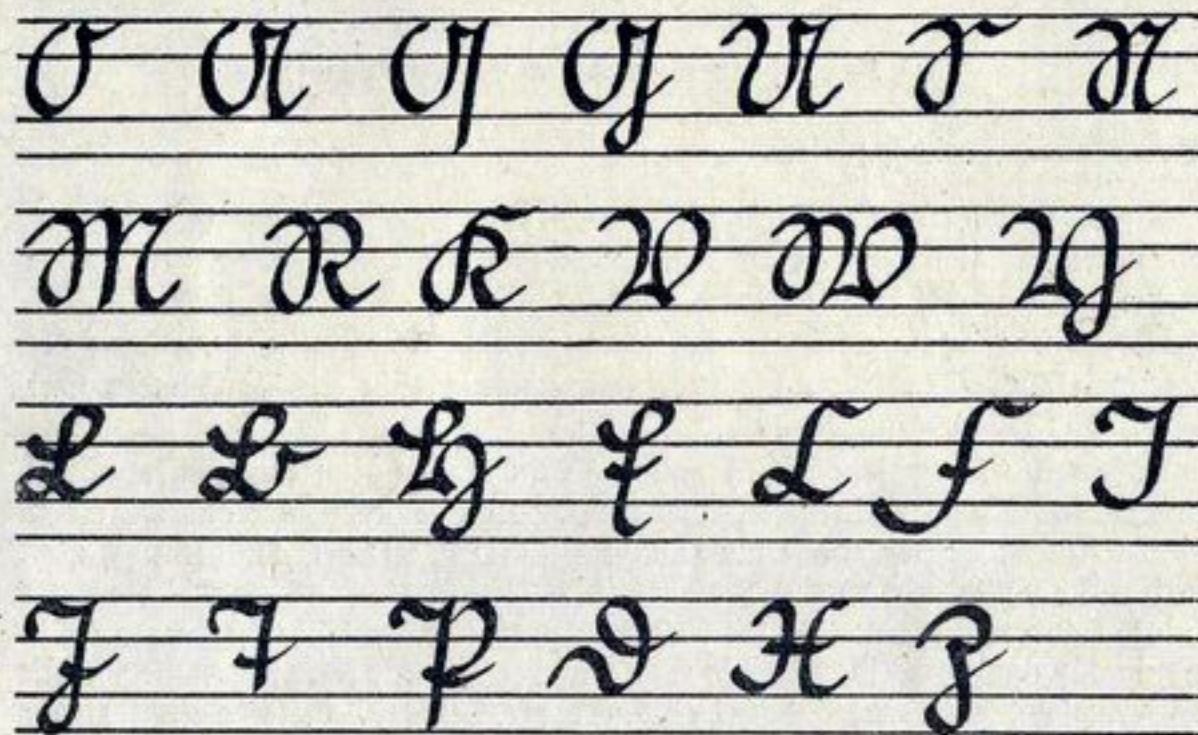 O A Q G U S N
M R K V W Y
C B H E L F I
J T P D X Z